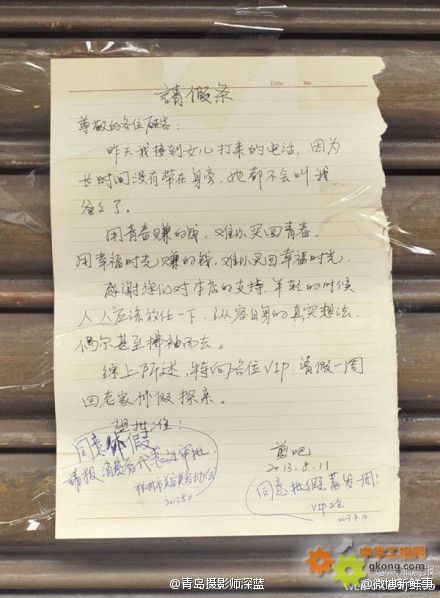 Date No
請假条
尊敬的各位顾客：
昨天我接到女儿打来的电话，因为
长时间没有带在身旁，她都不会叫我
爸爸了。
用青春赚的钱，难以买回青春，
用幸福时光赚的钱，难以买回幸福时光。
感谢你们对本店的支持，年轻的时候
人人应该放任一下，纵容自身的真实想法，
偶尔甚至拂袖而去。
综上所述，特向各位VIP请假一周
回老家休假探亲。
望批准！
剪吧
2013.8.11
同意休假
请报消费者代表处审批
2013.8.11
同意批假，蓄发一周！
VIP
2013.8.12
中华工控网
gkong.com
@青岛摄影师深蓝
@微博新鲜事